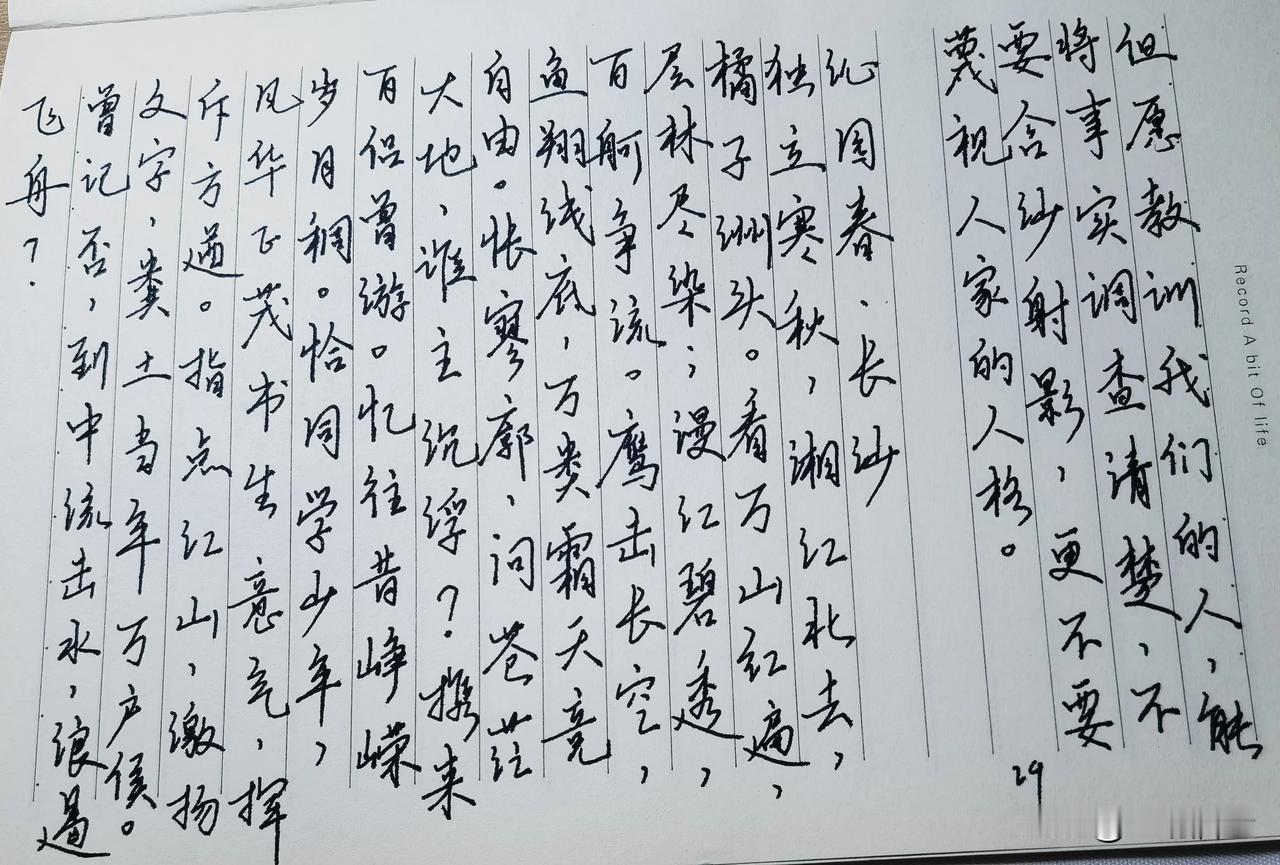 Record A bit Of life
但愿教训我们的人，能
将事实调查清楚，不
要含沙射影，更不要
蔑视人家的人格。
29
沁园春·长沙
独立寒秋，湘江北去，
橘子洲头。看万山红遍，
层林尽染；漫江碧透，
百舸争流。鹰击长空，
鱼翔浅底，万类霜天竞
自由。怅寥廓，问苍茫
大地，谁主沉浮？携来
百侣曾游。忆往昔峥嵘
岁月稠。恰同学少年，
风华正茂书生意气，挥
斥方遒。指点江山，激扬
文字，粪土当年万户侯。
曾记否，到中流击水，浪遏
飞舟？